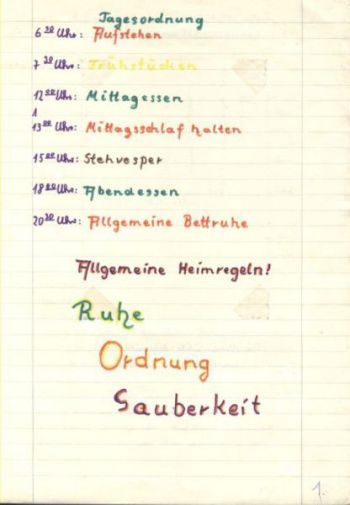 Tagesordnung
6 30 Uhr: Aufstehen
7 30 Uhr: Frühstücken
12 00 Uhr: Mittagessen
13 00 Uhr: Mittagsschlaf halten
15 00 Uhr: Stehvesper
18 00 Uhr: Abendessen
20 30 Uhr: Allgemeine Bettruhe
Allgemeine Heimregeln!
Ruhe
Ordnung
Sauberkeit
1.